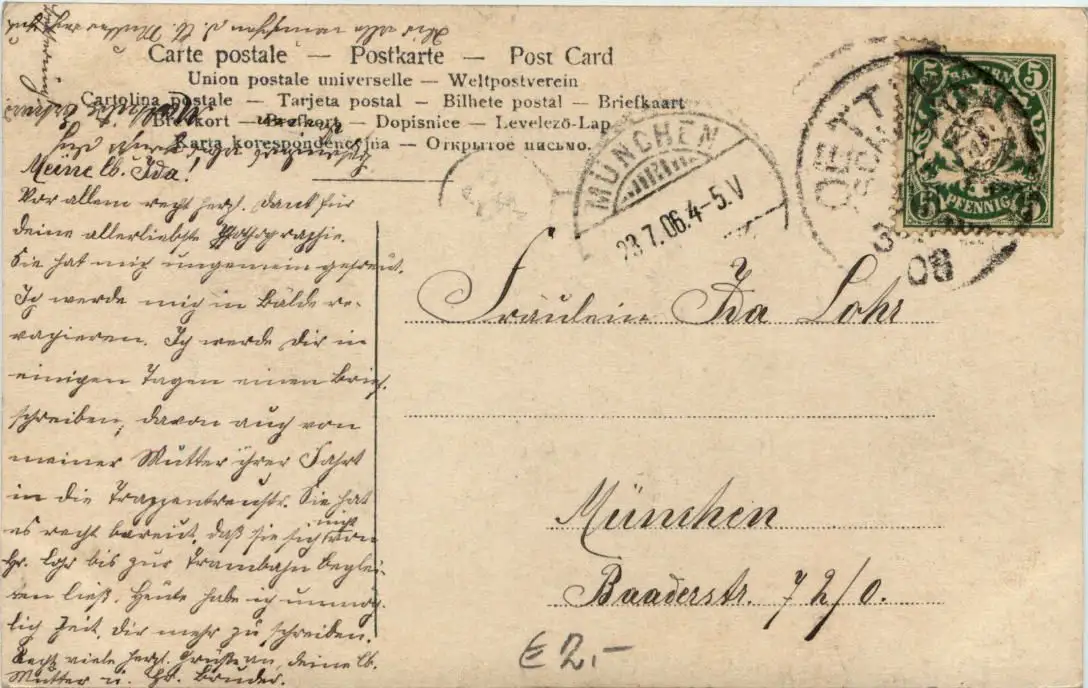 Carte postale — Postkarte — Post Card
Union postale universelle — Weltpostverein
Cartolina postale — Tarjeta postal — Bilhete postal — Briefkaart
Brevkort — Brefkort — Dopisnice — Levelező-Lap
Karta korespondencyjna — Открытое письмо.
Meine lb. Ida!
Vor allem recht herzl. Dank für
deine allerliebste Photographie.
Sie hat mich ungemein gefreut.
Ich werde mich in Bälde re-
vagieren. Ich werde Dir in
einigen Tagen einen Brief
schreiben, davon auch von
meiner Mutter ihrer Fahrt
in die Trappentreustr. Sie hat
es recht bereut, daß sie sich nicht von
Hr. Lohr bis zur Trambahn beglei-
ten ließ. Heute habe ich unmög-
lich Zeit, dir mehr zu schreiben.
Recht viele herzl. Grüße an deine lb.
Mutter u. Hr. Bruder.
MÜNCHEN
23.7.06.4-5.V
08
BAYERN
5 5
5 5
PFENNIG
Fräulein Ida Lohr
München
Baaderstr. 72/0.
€ 2,-